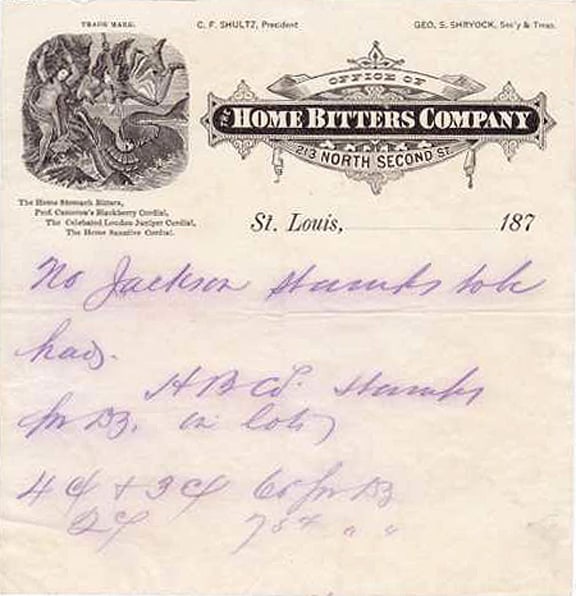 TRADE MARK.
C. F. SHULTZ, President
GEO. S. SHRYOCK, Sec'y & Treas.
OFFICE OF
THE HOME BITTERS COMPANY
213 NORTH SECOND ST.
The Home Stomach Bitters,
Prof. Cameron's Blackberry Cordial,
The Celebated London Juniper Cordial,
The Home Sanative Cordial.
St. Louis, 187
No Jackson Stamps to be
had.
H B Co. Stamps
in lots
4 & 3 60
2 75